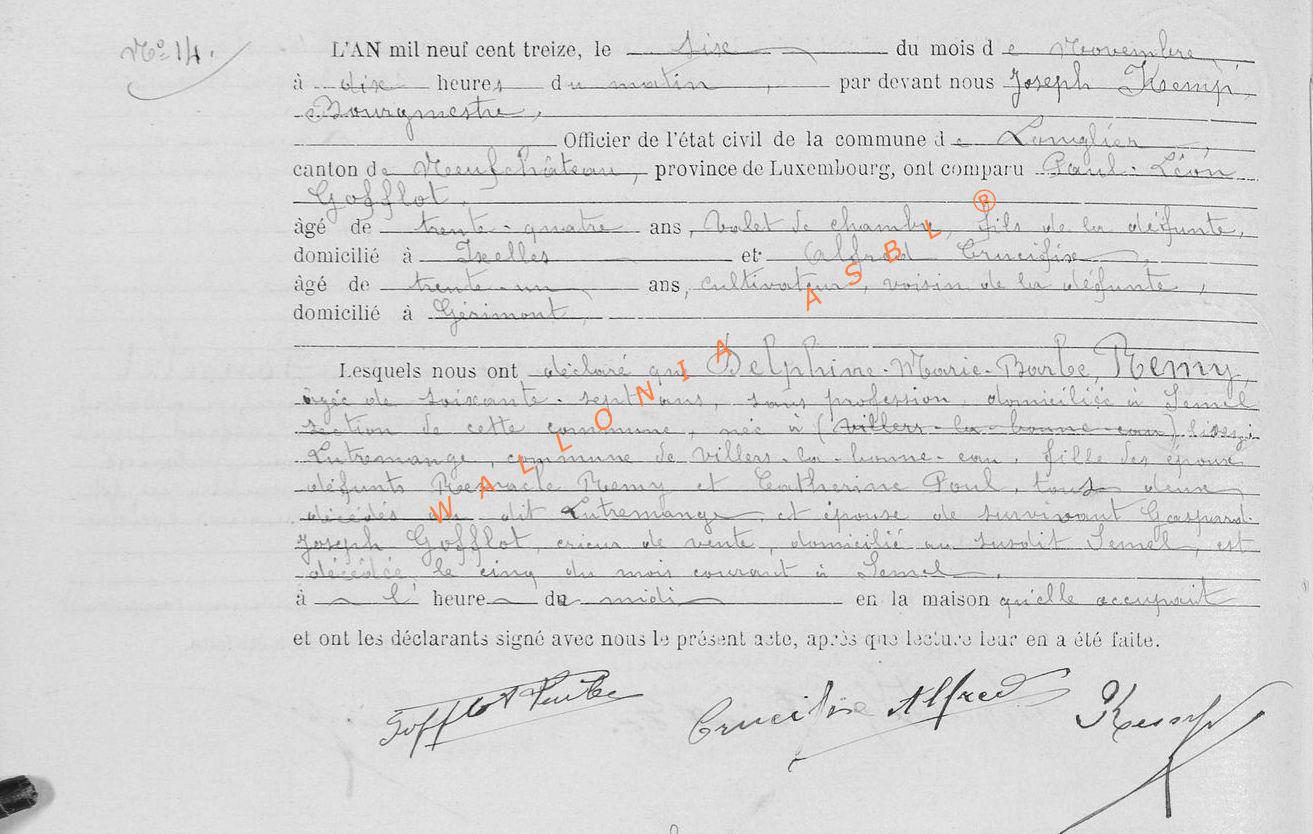 No 14.
L'AN mil neuf cent treize, le six du mois de Novembre
à dix heures du matin, par devant nous Joseph Kemp,
Bourgmestre,
Officier de l'état civil de la commune de Longlier,
canton de Neufchâteau, province de Luxembourg, ont comparu Paul-Léon
Gofflot,
âgé de trente-quatre ans, valet de chambre, fils de la défunte,
domicilié à Ixelles et Alfred Crucifix,
âgé de trente-un ans, cultivateur, voisin de la défunte,
domicilié à Gérimont,
Lesquels nous ont déclaré que Delphine-Marie-Barbe Remy,
agée de soixante-sept ans, sans profession, domiciliée à Semel
section de cette commune, née à (villers-la-bonne-eau) lisez:
Lutremange, commune de villers-la-bonne-eau, fille des époux
défunts Remacle Remy et Catherine Poul, tous deux
décédés au dit Lutremange et épouse de survivant Gaspard-
Joseph Gofflot, crieur de vente, domicilié au susdit Semel, est
décédée, le cinq du mois courant à Semel,
à l' heure de midi en la maison qu'elle occupait
et ont les déclarants signé avec nous le présent acte, après que lecture leur en a été faite.
Gofflot
Crucifix Alfred
Kemp
WALLONIA ASBL ®